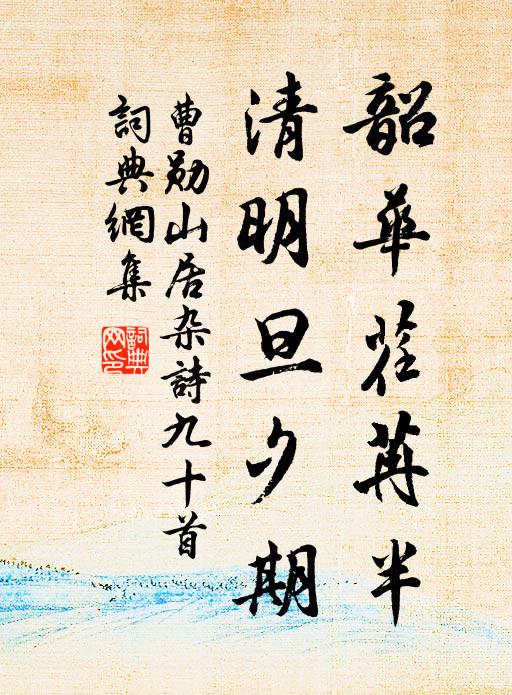 韶華荏苒半
清明旦夕期
曹勛山居杂詩九十首
詞典網集
詞典
网印